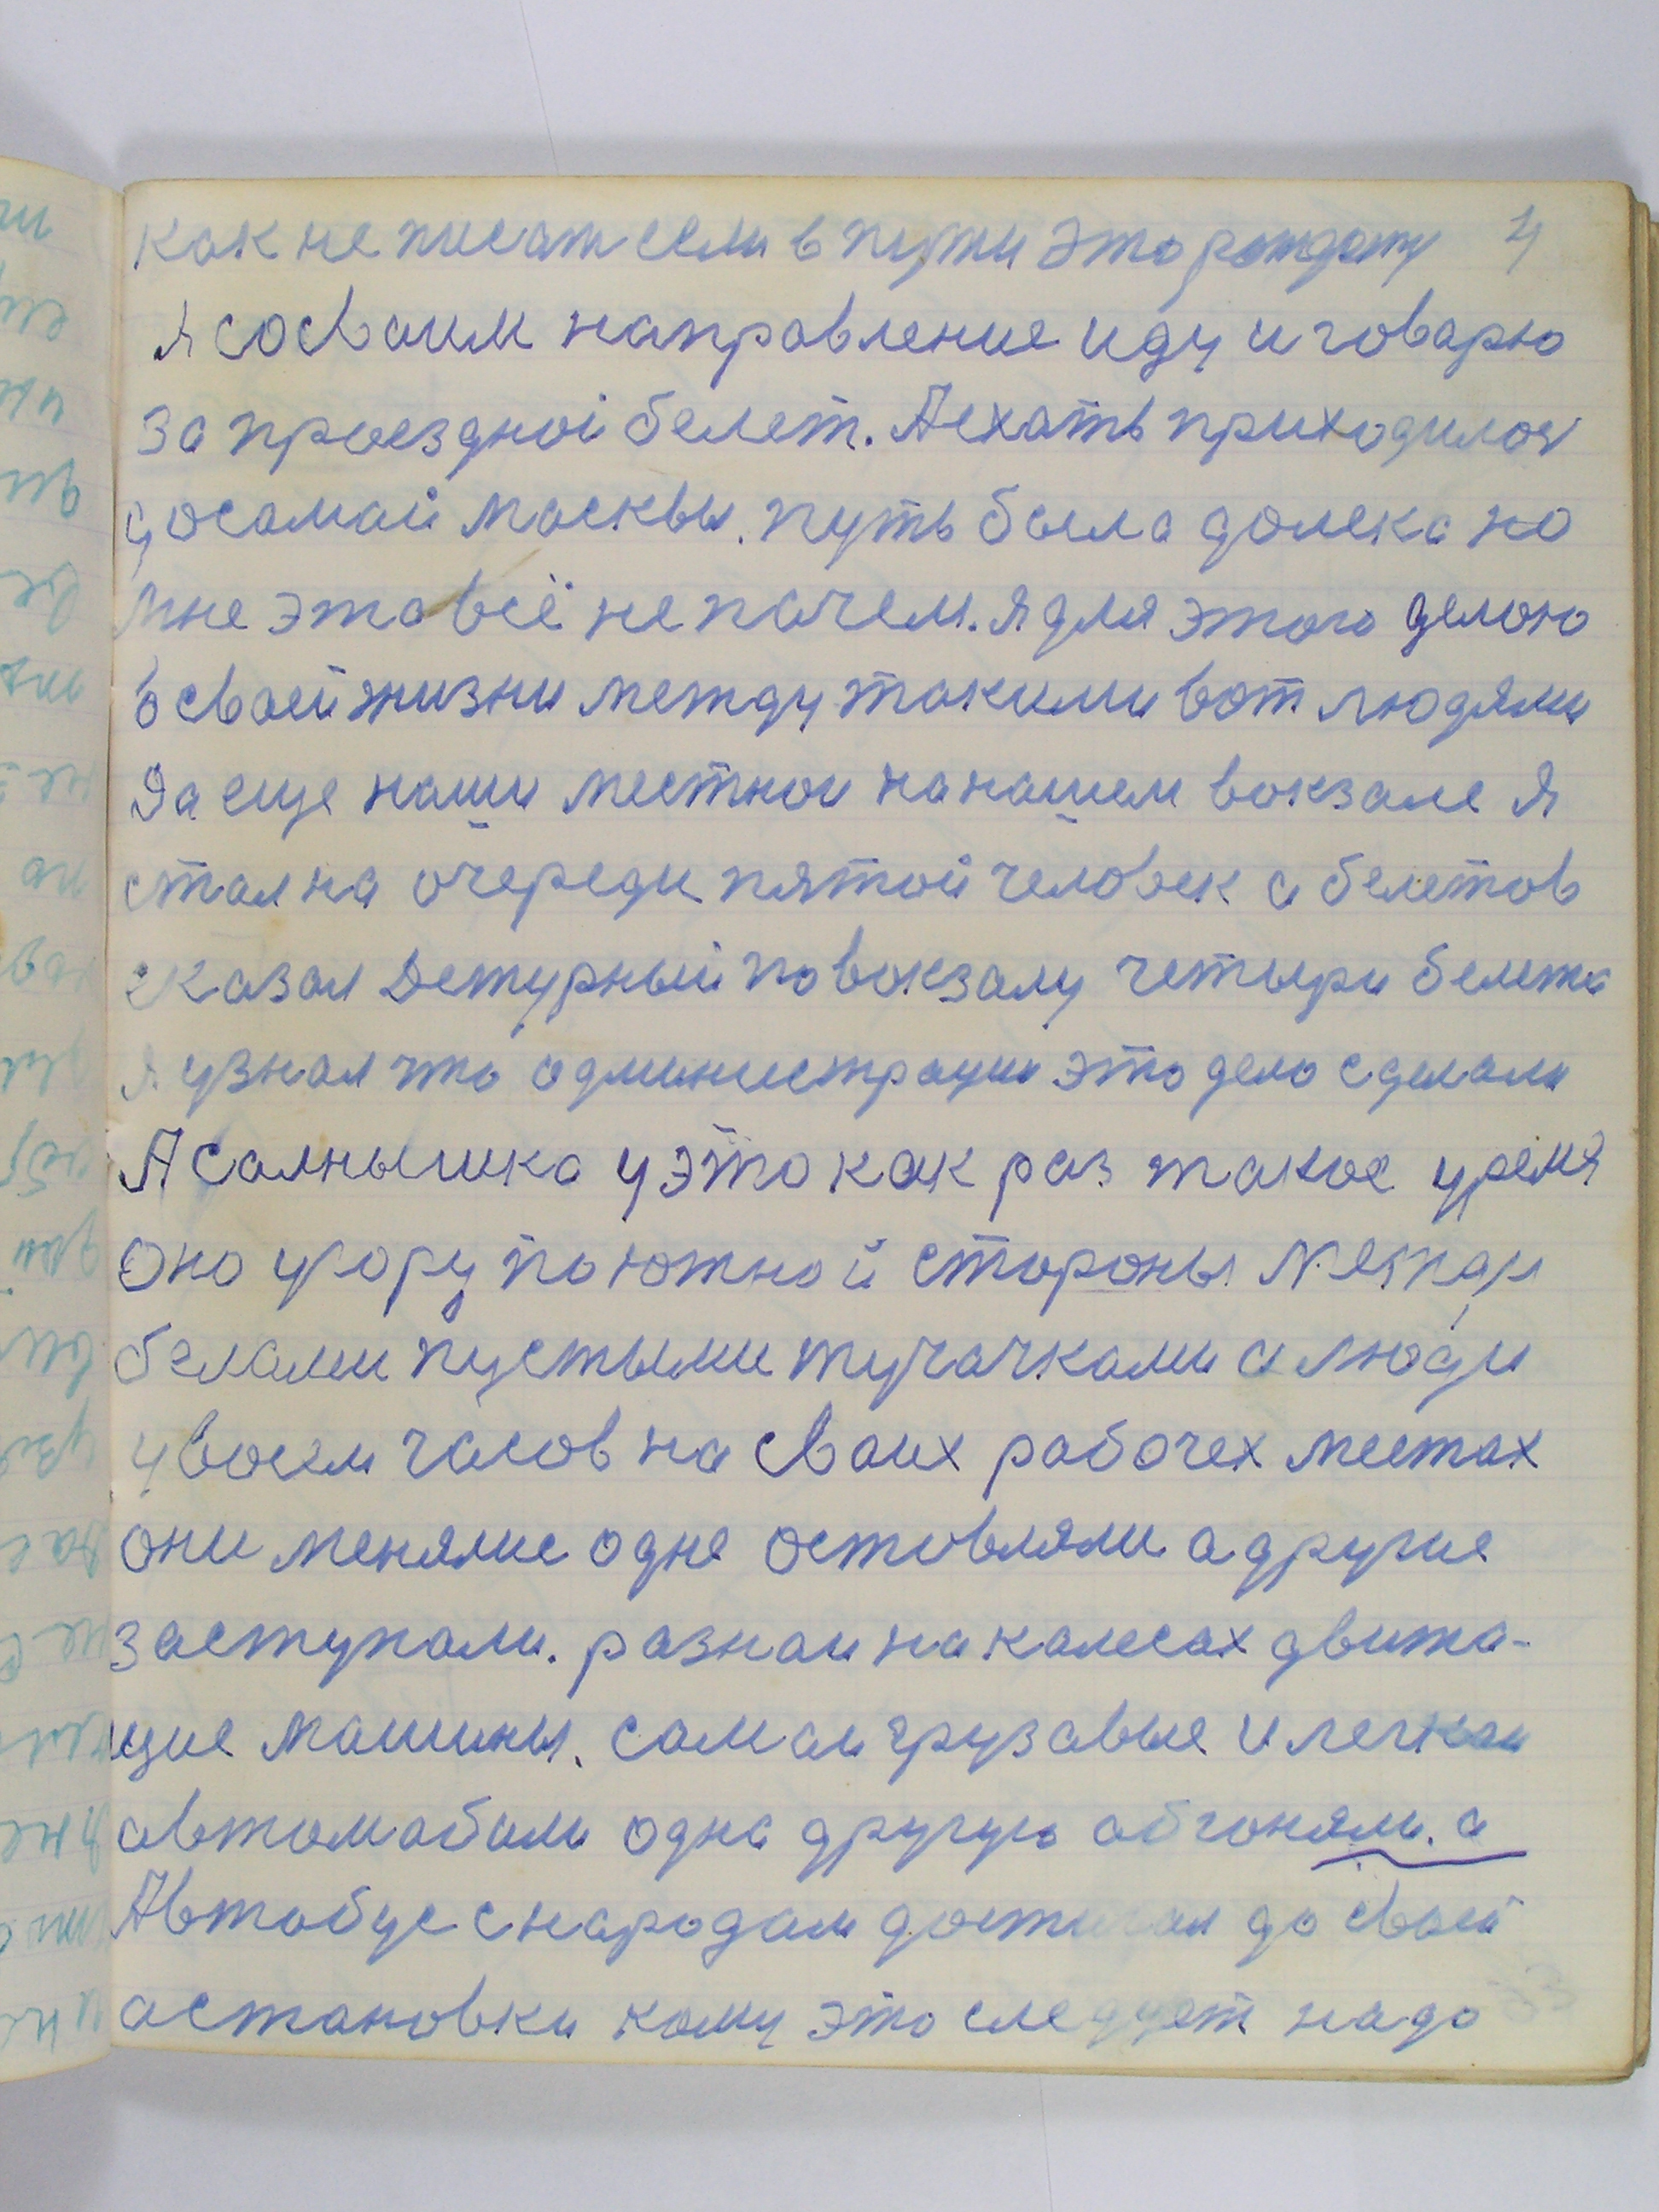 как не писат если в пути это рождают 4
я со сваим направление иду и говарю
за проездной белет. А ехать приходилос
до самай масквы. путь была далека но
мне это всё не почем. я для этого делаю
в сваей жизни между такими вот людями
Да еще наши местнои на нашем вокзале я
стал на очереди пятой человек а белетов
сказал Дежурный по вокзалу четыри белета
я узнал что администрации это дело сделали
А солнышка у это как раз такое уремя
оно угору по южной стороны между
белами пустыми тучачками а люди
у восем часов на сваих рабочех местах
они менялие одне оставляли а другие
заступали. разнаи на калесах движа-
щие машины. самаи грузавые и легкаи
автомабили одна другую абгоняли. а
Автобус с народам достигал до сваей
астановки кому это следует надо